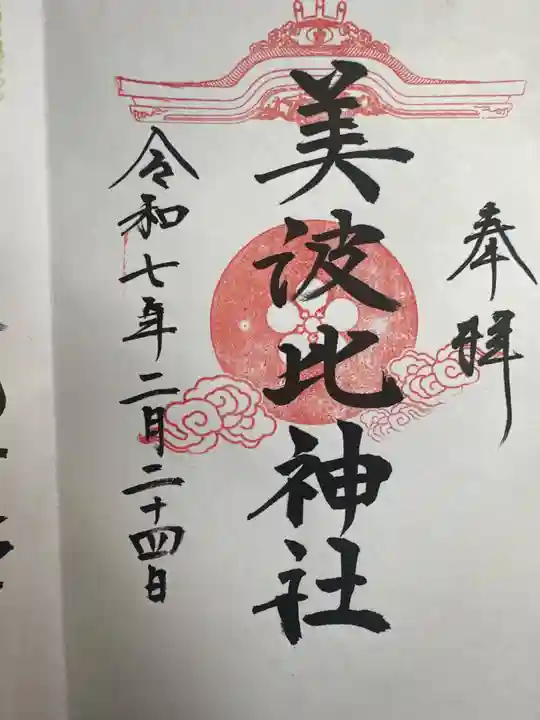 奉拝
美波比神社
令和七年二月二十四日